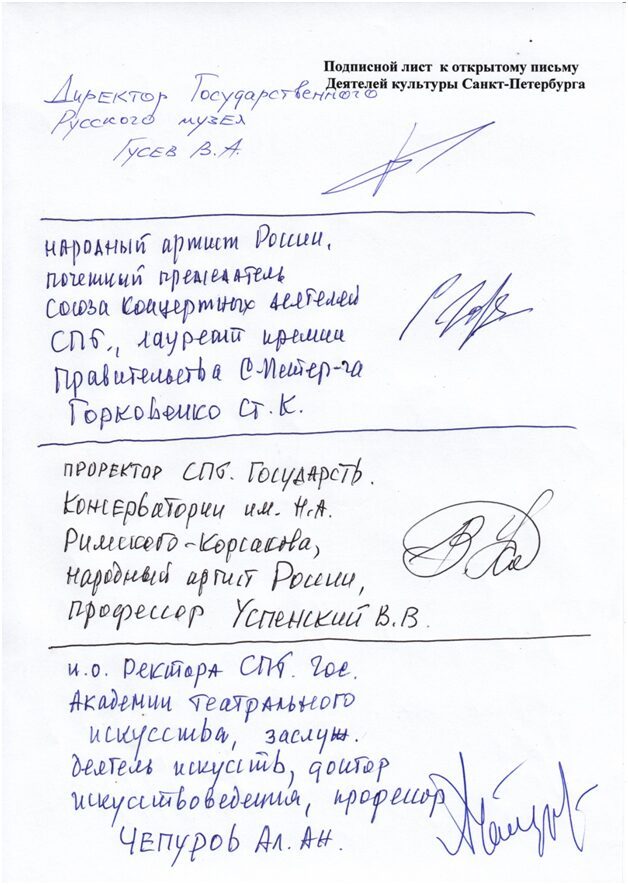 Подписной лист к открытому письму
Деятелей культуры Санкт-Петербурга
Директор Государственного
Русского музея
Гусев В.А.
народный артист России,
почетный председатель
Союза концертных деятелей
СПб., лауреат премии
Правительства С-Петер-га
Горковенко Ст. К.
проректор СПб. Государств.
Консерватории им. Н.А.
Римского-Корсакова,
народный артист России,
профессор Успенский В.В.
и.о. Ректора СПб. Гос.
Академии театрального
искусства, заслуж.
деятель искусств, доктор
искусствоведения, професор
Чепуров Ал. Ан.